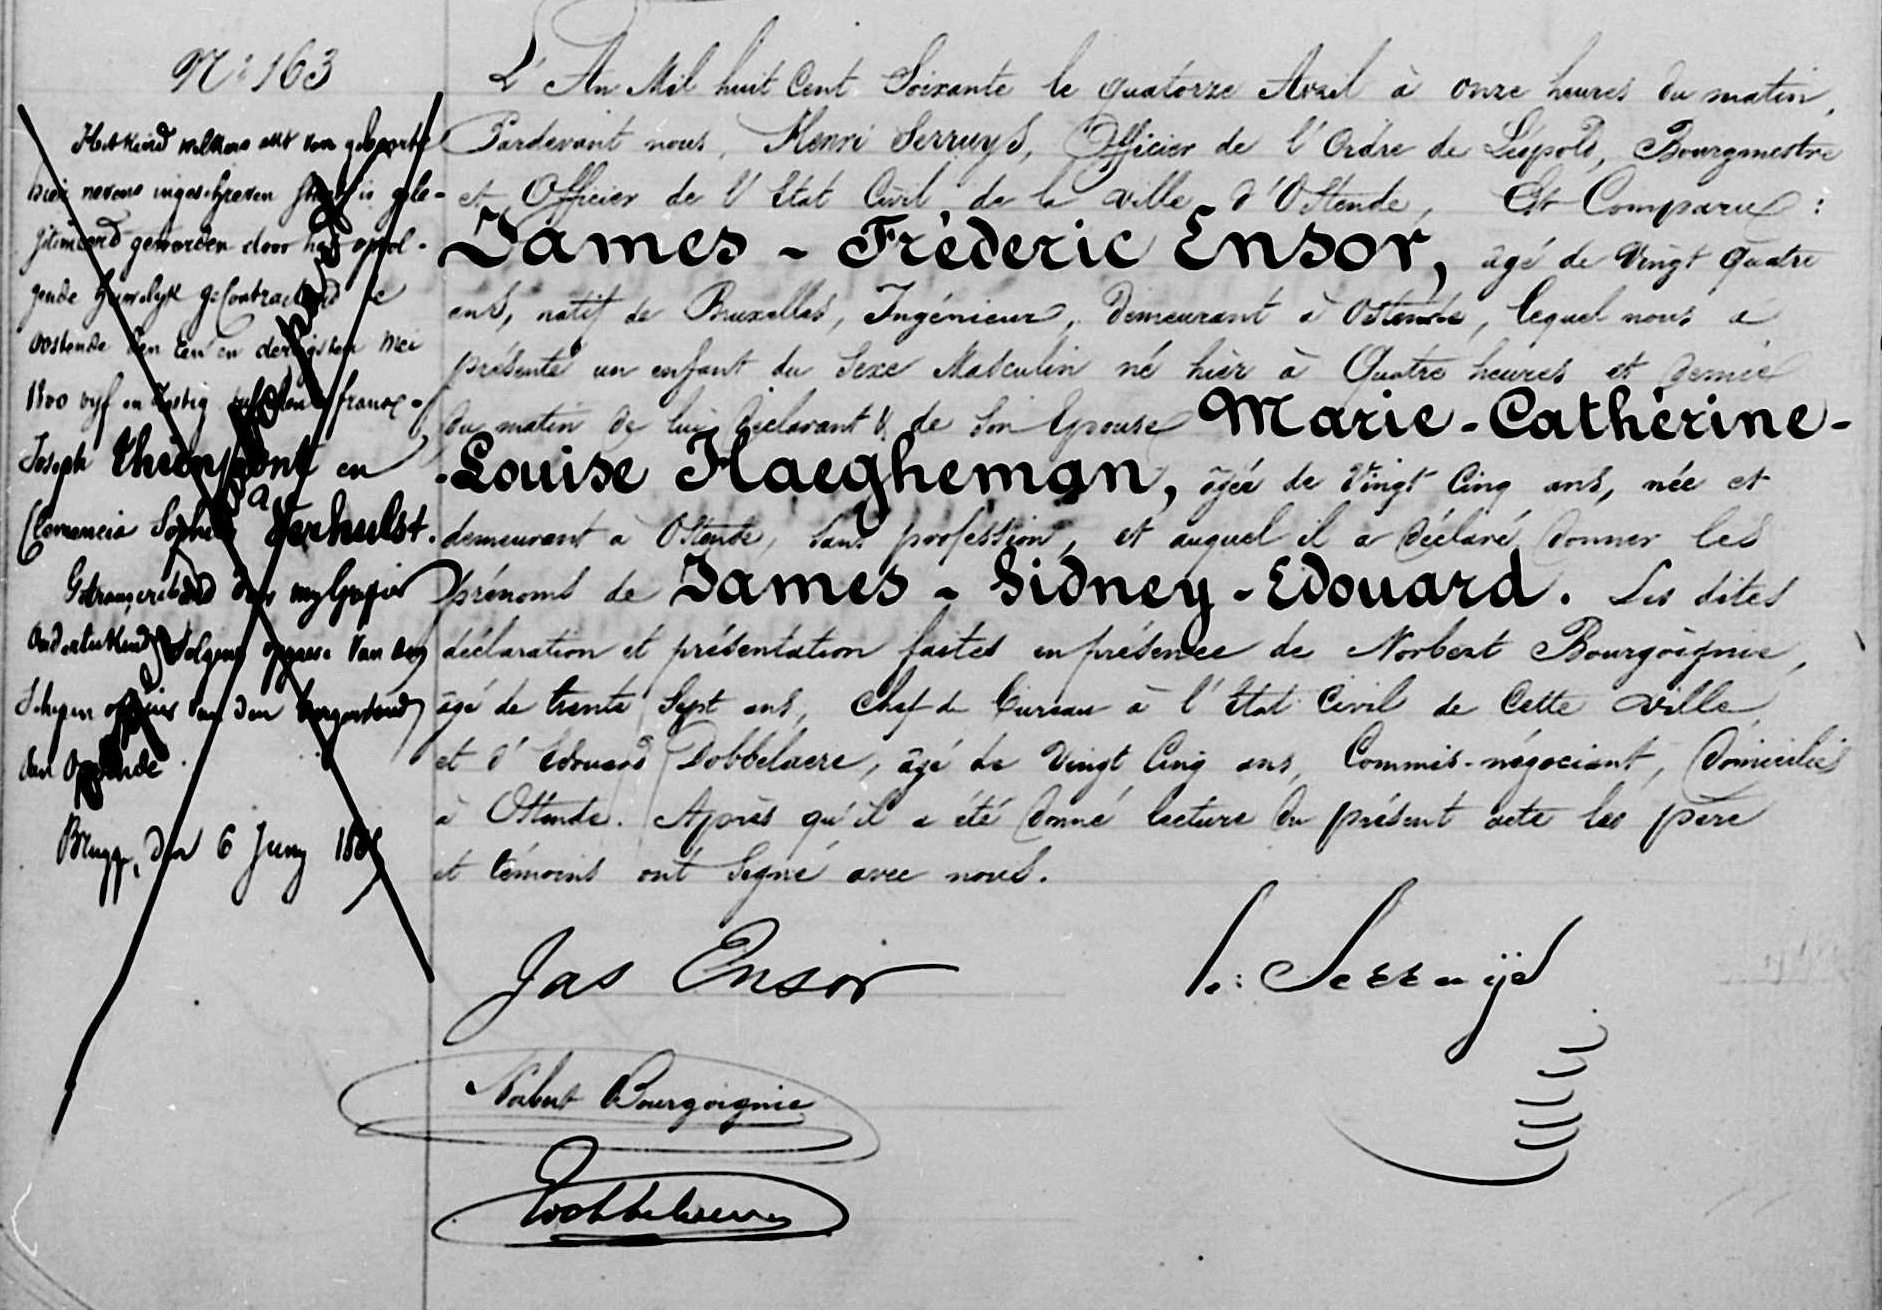 N° 163
Het kind welkens akt van geboorte
hier nevens ingeschreven staat is gele-
gitimeerd geworden door het opvol-
gende huwelyk gecontracteerd te
Oostende den een en dertigsten Mei
1800 vyf en tusschen franc.
Joseph Thienpont en
Clemencia Sophia Verhulst.
Getranscribeerd door my Griffier
ondertekend volgens opgave van den
Schepen officier van den burgerstand
van Oostende.
Brugge, den 6 Juny
L'An Mil huit Cent Soixante le quatorze Avril à onze heures du matin,
Pardevant nous, Henri Serruys, Officier de l'Ordre de Léopold, Bourgmestre
et Officier de l'Etat Civil de la ville d'Ostende, Est Comparu :
James - Fréderic Ensor, âgé de Vingt Quatre
ans, natif de Bruxelles, Ingénieur, demeurant à Ostende, lequel nous a
présenté un enfant du Sexe Masculin né hièr à Quatre heures et demie
du matin de lui déclarant & de Son Epouse Marie - Cathérine -
- Louise Haegheman, âgée de Vingt Cinq ans, née et
demeurant à Ostende, Sans profession, et auquel il a déclaré donner les
prénoms de James - Sidney - Edouard. Les dites
déclaration et présentation faites en présence de Norbert Bourgoignie,
âgé de trente Sept ans, Chef de bureau à l'Etat Civil de Cette ville
et d'Edouard Dobbelaere, âgé de Vingt Cinq ans, Commis-négociant, domiciliés
à Ostende. Après qu'il a été donné lecture du présent acte les père
et témoins ont Signé avec nous.
Jas Ensor
h: Serruijs
Norbert Bourgoignie
Dobbelaere